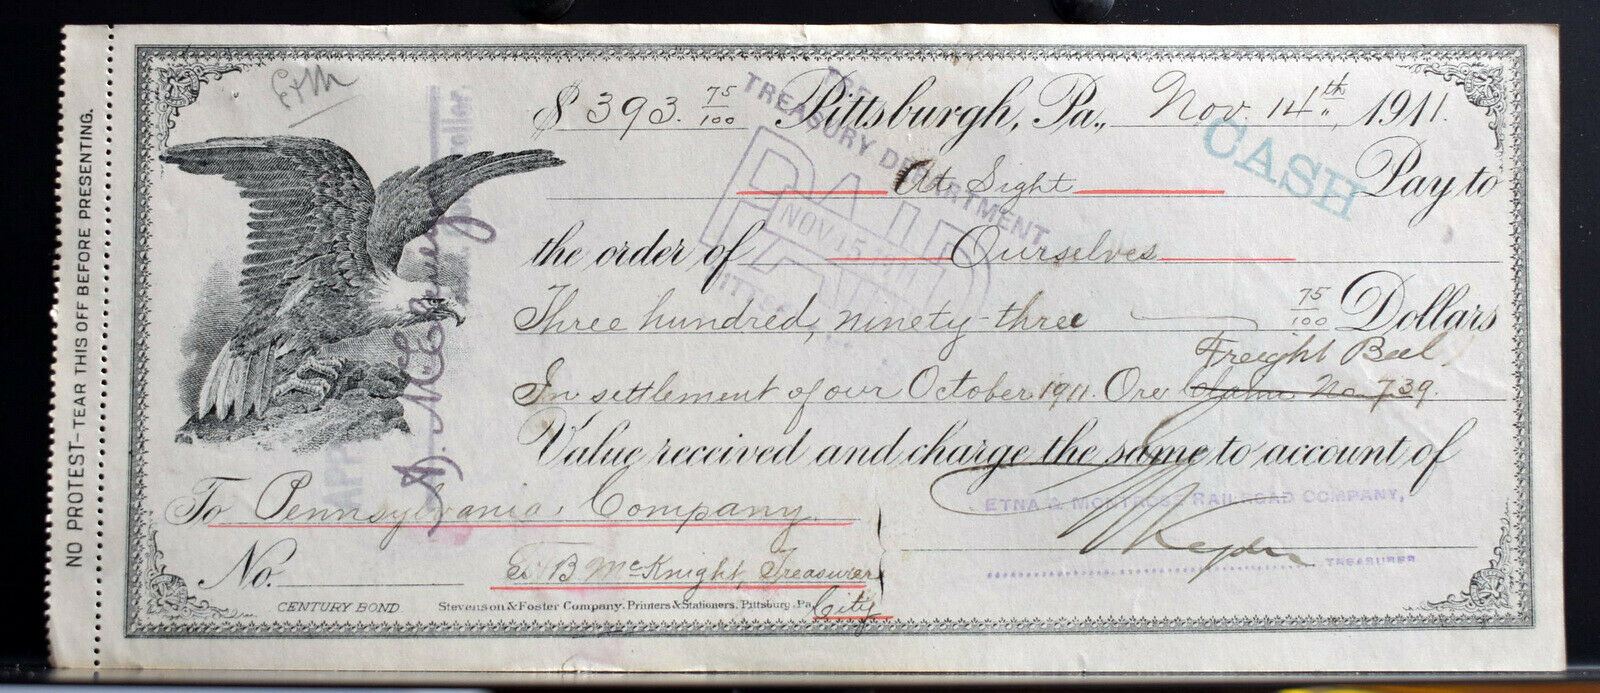 NO PROTEST-TEAR THIS OFF BEFORE PRESENTING.
$ 393. 75/100 Pittsburgh, Pa., Nov. 14th, 1911.
At Sight Pay to
CASH
the order of Ourselves
TREASURY DEPARTMENT
PAID
NOV 15 1911
Three hundred, ninety-three 75/100 Dollars
Freight Bal
In settlement of our October 1911. Ore Claim No. 739.
Value received and charge the same to account of
ETNA & MONTROSE RAILROAD COMPANY,
TREASURER
To Pennsylvania Company.
No. B McKnight, Treasurer
City
CENTURY BOND Stevenson & Foster Company. Printers & Stationers. Pittsburg. Pa.